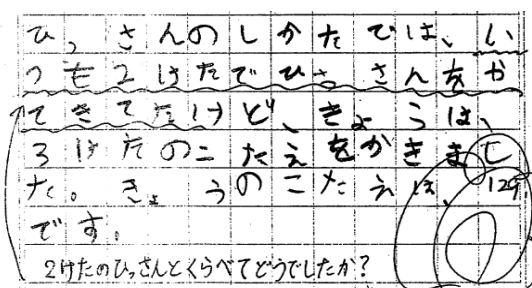 ひっさんのしかたでは、い
つも2けたでひっさんをか
てきてたけど、きょうは、
3けたのこたえをかきまし
た。きょうのこたえは、129
です。
2けたのひっさんとくらべてどうでしたか?